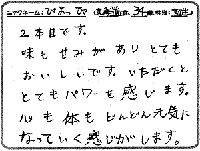 ニックネーム:ぴあっひ
2本目です。
味も甘みがありとても
おいしいです。いただくと
とてもパワーを感じます。
心も体もどんどん元気に
なっていく感じがします。